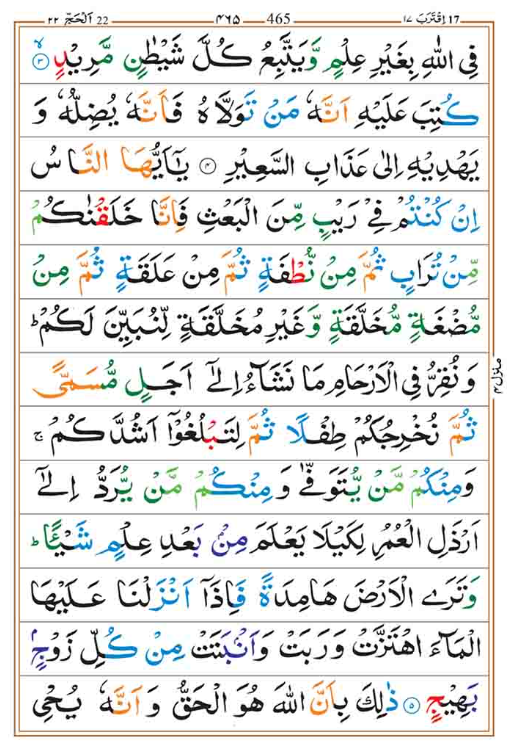 ١٧ اِقْتَرَبَ 17 ٤٦٥ 465 ٢٢ اَلْحَجّ 22
فِى اللّٰهِ بِغَيْرِ عِلْمٍ وَّيَتَّبِعُ كُلَّ شَيْطٰنٍ مَّرِيْدٍ ۙ﴿٣﴾
كُتِبَ عَلَيْهِ اَنَّهٗ مَنْ تَوَلَّاهُ فَاَنَّهٗ يُضِلُّهٗ وَ
يَهْدِيْهِ اِلٰى عَذَابِ السَّعِيْرِ ﴿٤﴾ يٰۤاَيُّهَا النَّاسُ
اِنْ كُنْتُمْ فِيْ رَيْبٍ مِّنَ الْبَعْثِ فَاِنَّا خَلَقْنٰكُمْ
مِّنْ تُرَابٍ ثُمَّ مِنْ نُّطْفَةٍ ثُمَّ مِنْ عَلَقَةٍ ثُمَّ مِنْ
مُّضْغَةٍ مُّخَلَّقَةٍ وَّغَيْرِ مُخَلَّقَةٍ لِّنُبَيِّنَ لَكُمْ ؕ
وَنُقِرُّ فِى الْاَرْحَامِ مَا نَشَآءُ اِلٰۤى اَجَلٍ مُّسَمًّى
ثُمَّ نُخْرِجُكُمْ طِفْلًا ثُمَّ لِتَبْلُغُوْۤا اَشُدَّكُمْ ۚ
وَمِنْكُمْ مَّنْ يُّتَوَفّٰى وَمِنْكُمْ مَّنْ يُّرَدُّ اِلٰۤى
اَرْذَلِ الْعُمُرِ لِكَيْلَا يَعْلَمَ مِنْۢ بَعْدِ عِلْمٍ شَيْـًٔا ؕ
وَتَرَى الْاَرْضَ هَامِدَةً فَاِذَاۤ اَنْزَلْنَا عَلَيْهَا
الْمَآءَ اهْتَزَّتْ وَرَبَتْ وَاَنْۢبَتَتْ مِنْ كُلِّ زَوْجٍۢ
بَهِيْجٍ ﴿٥﴾ ذٰلِكَ بِاَنَّ اللّٰهَ هُوَ الْحَقُّ وَاَنَّهٗ يُحْيِ
منزل ٤